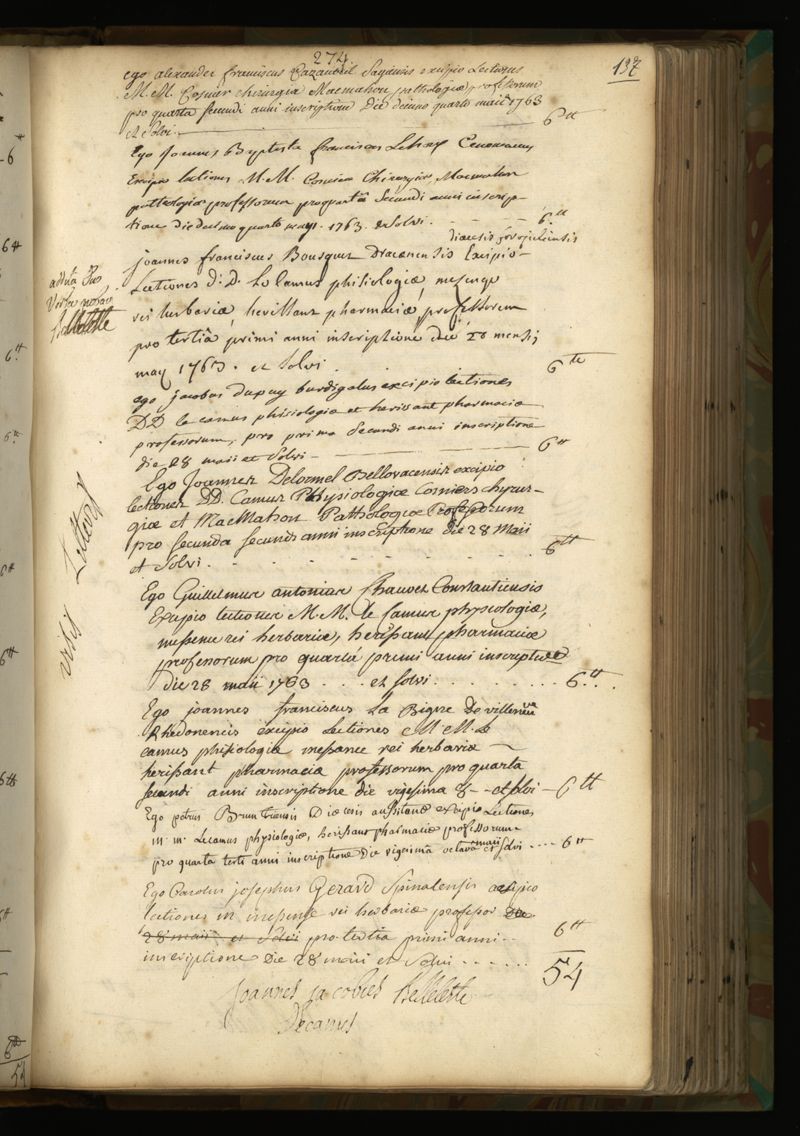 274
137
ego alexander franciscus Cazaubeil Sagiensis excipio Lectiones
M.M. Cosnier chirurgia Macmahon pathologiæ professorum
pro quarta secundi anni inscriptione Die decimo quarto maii 1763
et solvi. 6tt
Ego Joannes Baptista franciscus
Excipio lectiones M.M. Cosnier Chirurgiæ, Macmahon
pathologiæ professorum pro quartâ secundi anni inscrip-
tione die decimo quarto may. 1763. et Solvi. - - - - 6.tt
diœcesis forojuliensis
joannes franciscus Bousquet Dracenensis Excipio
Lectiones D: D. Lo Camus phisiologiæ, messenge
rei herbariæ, herissant pharmaciæ, professorum
pro tertiâ primi anni inscriptione die 28 mensis
may 1763. et solvi. 6tt
addita duo
Verba
Belleteste
ego jacobus dupuy burdigalus excipio lectiones
DD le camus phisiologiæ et herissant pharmaciæ
professorum, pro prima secundi anni inscriptione
die 28 maii et solvi - 6tt
Ego Joannes Delormel Bellovacensis excipio
lectiones DD. Camus Physiologiæ Cosniers chyrur-
giæ et MacMahon Pathologiæ Professorum
pro secunda secundi anni inscriptione die 28 Maii
et solvi. - - - - - - - 6tt
Ego Guillelmus antonius Chauvet Constantiensis
Excipio lectiones M.M. le Camus physiologiæ,
messenc rei herbariæ, herissant pharmaciæ
professorum pro quartâ primi anni inscriptione
die 28 maii 1763 . . . . et solvi . . . . . . . . 6.tt
Ego joannes franciscus La Bigne De villeneuve
Rhedonencis excipio Lectiones M M. Le
camus phisiologiæ messance rei herbariæ ~
herissant pharmaciæ professorum pro quarta
secundi anni inscriptione die vigesima 8 - et solvi - 6tt
Ego petrus Brun Diœcesis auxitanæ excipio Lectiones
m. m. Lecamus physiologiæ, herissant pharmaciæ professorum
pro quarta tertii anni inscriptione die vigesimâ octavâ maii et solvi . . . . 6tt
Ego Carolus josephus Gerard Spinalensis excipio
lectiones m messenc rei herbariæ professor die
28 maii et solvi pro tertia primi anni . .
inscriptione Die 28 maii et solvi . . . . . . 6tt
54
Joannes jacobus Belleteste
Decanus